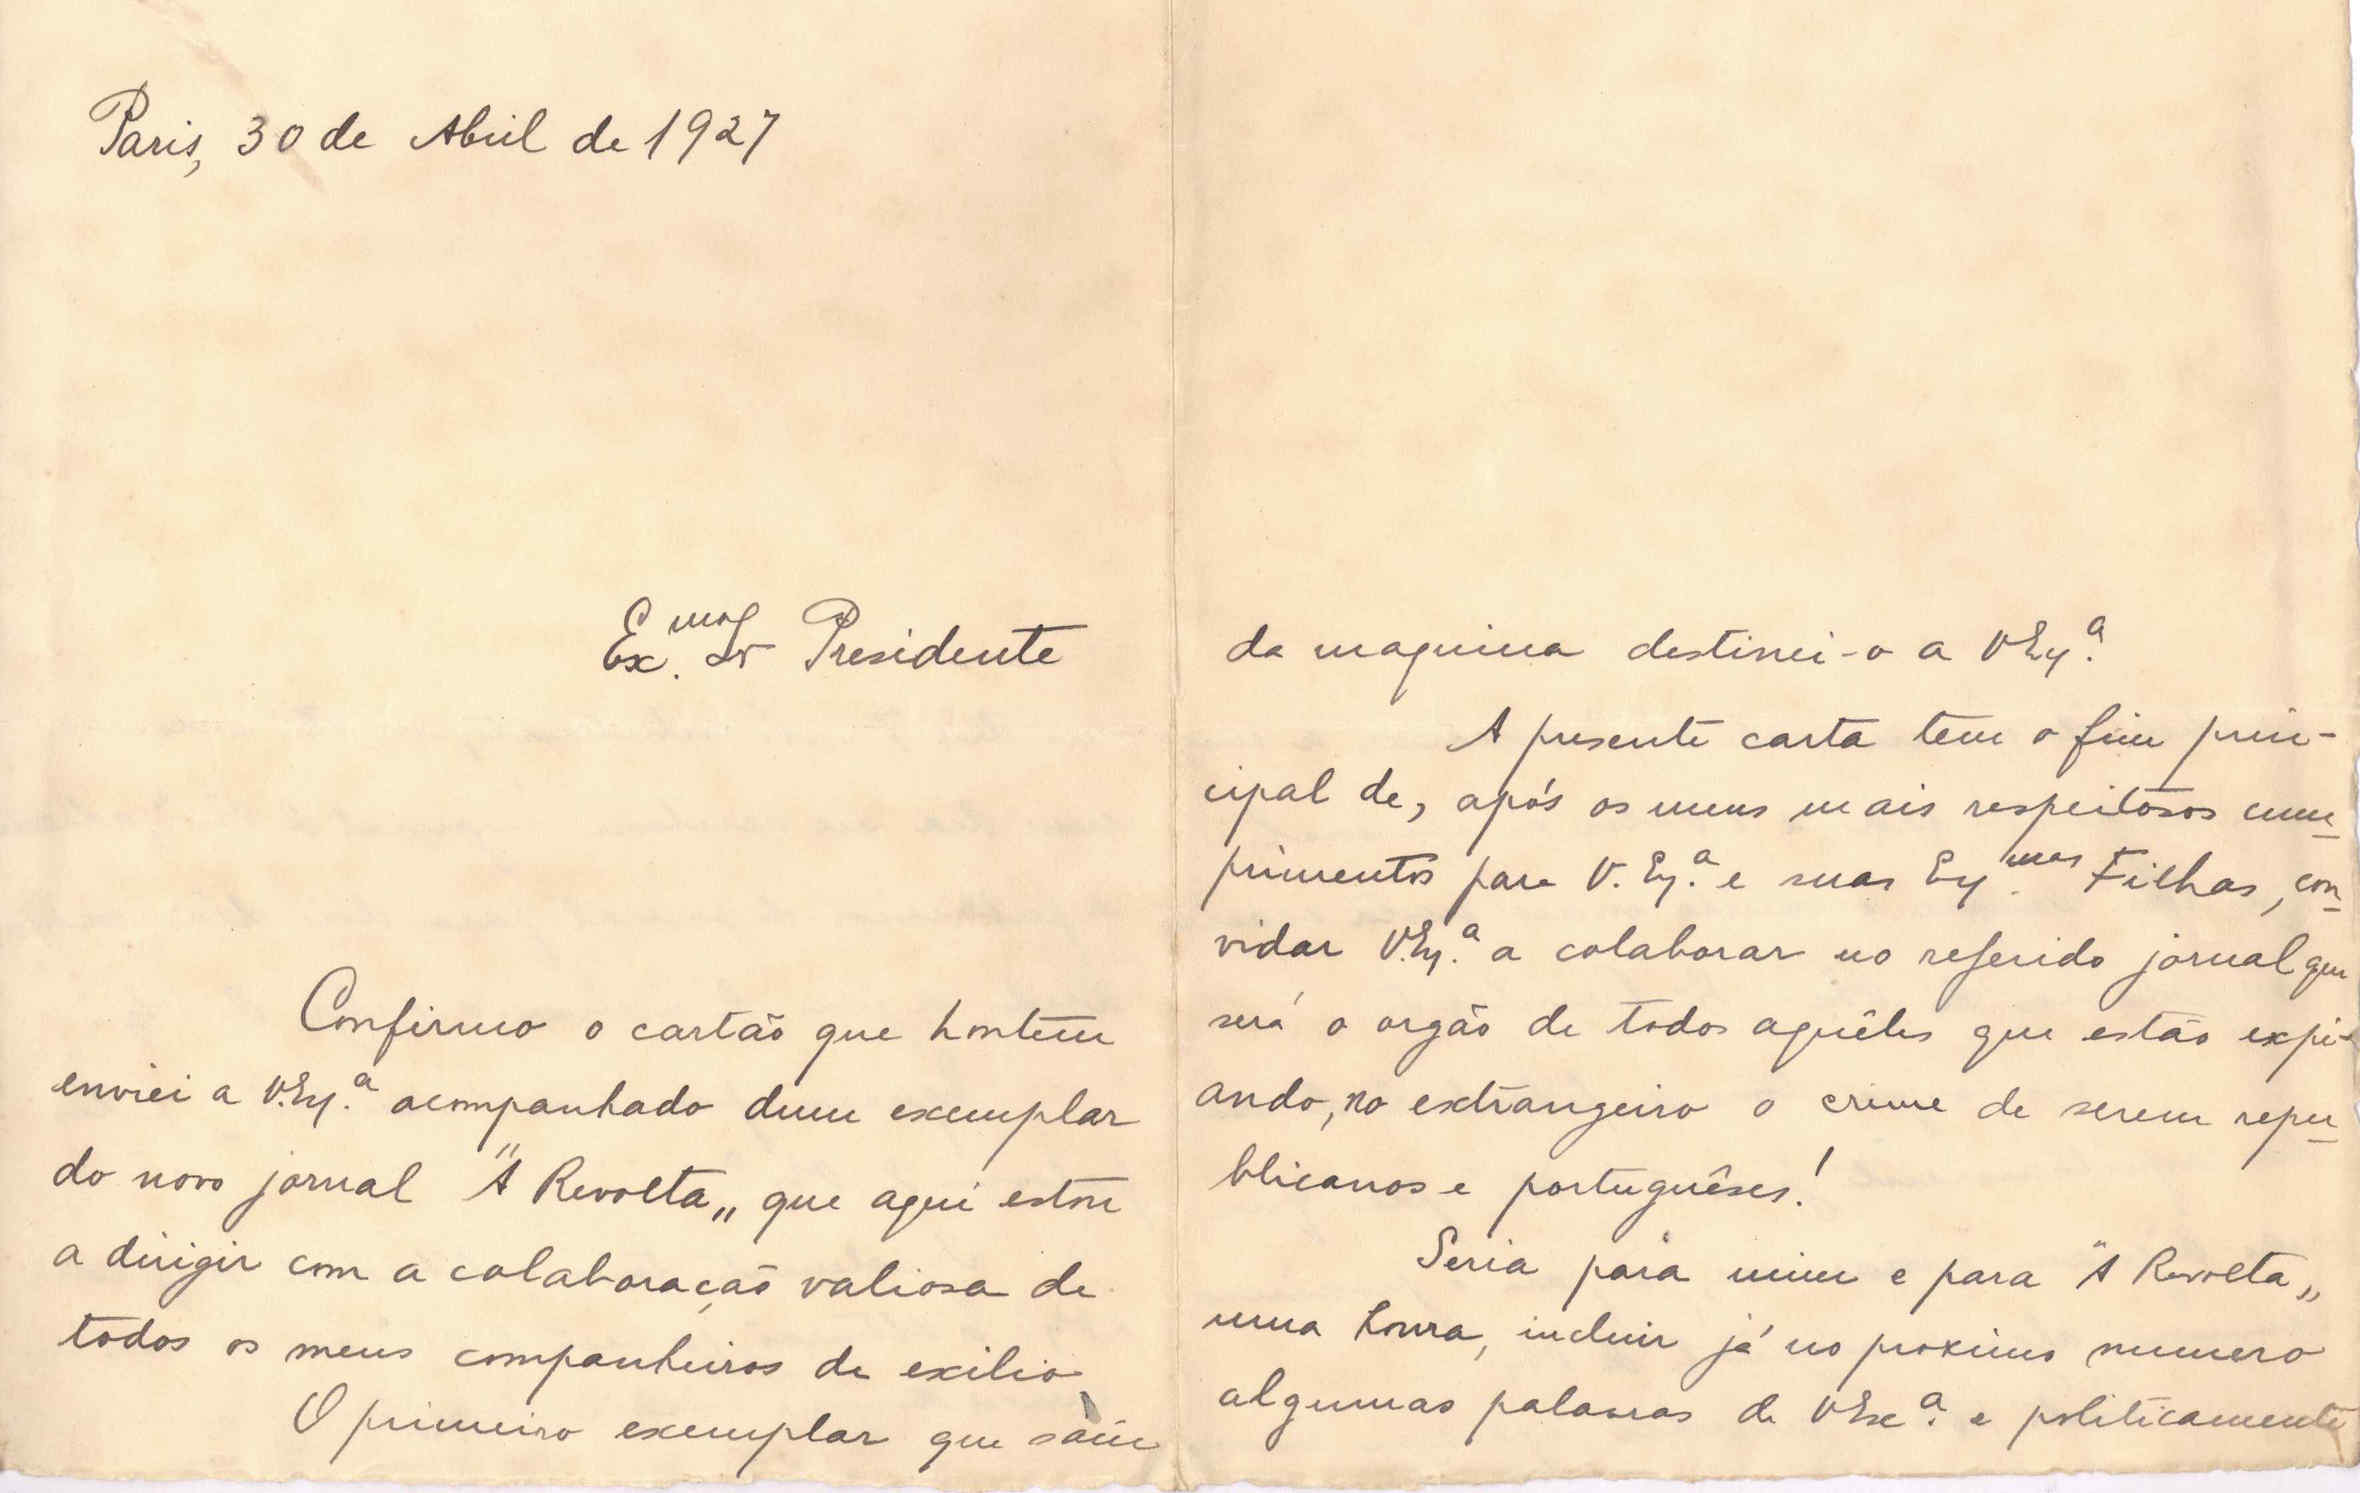 Paris, 30 de Abril de 1927
Ex.mo Sr Presidente
Confirmo o cartão que hontem
enviei a V.Ex.a acompanhado dum exemplar
do novo jornal "A Revolta„ que aqui estou
a dirigir com a colaboração valiosa de
todos os meus companheiros de exilio
O primeiro exemplar que saiu
da maquina destinei-o a V Ex.a
A presente carta tem o fim prin-
cipal de, após os meus mais respeitosos cum-
primentos para V. Ex.a e suas Ex.mas Filhas, con-
vidar V.Ex.a a colaborar no referido jornal que
será o orgão de todos aquêles que estão expi-
ando, no extrangeiro o crime de serem repu-
blicanos e portuguêses!
Seria para mim e para "A Revolta„
uma honra, incluir já no proximo numero
algumas palavras de V Ex.a e politicamente